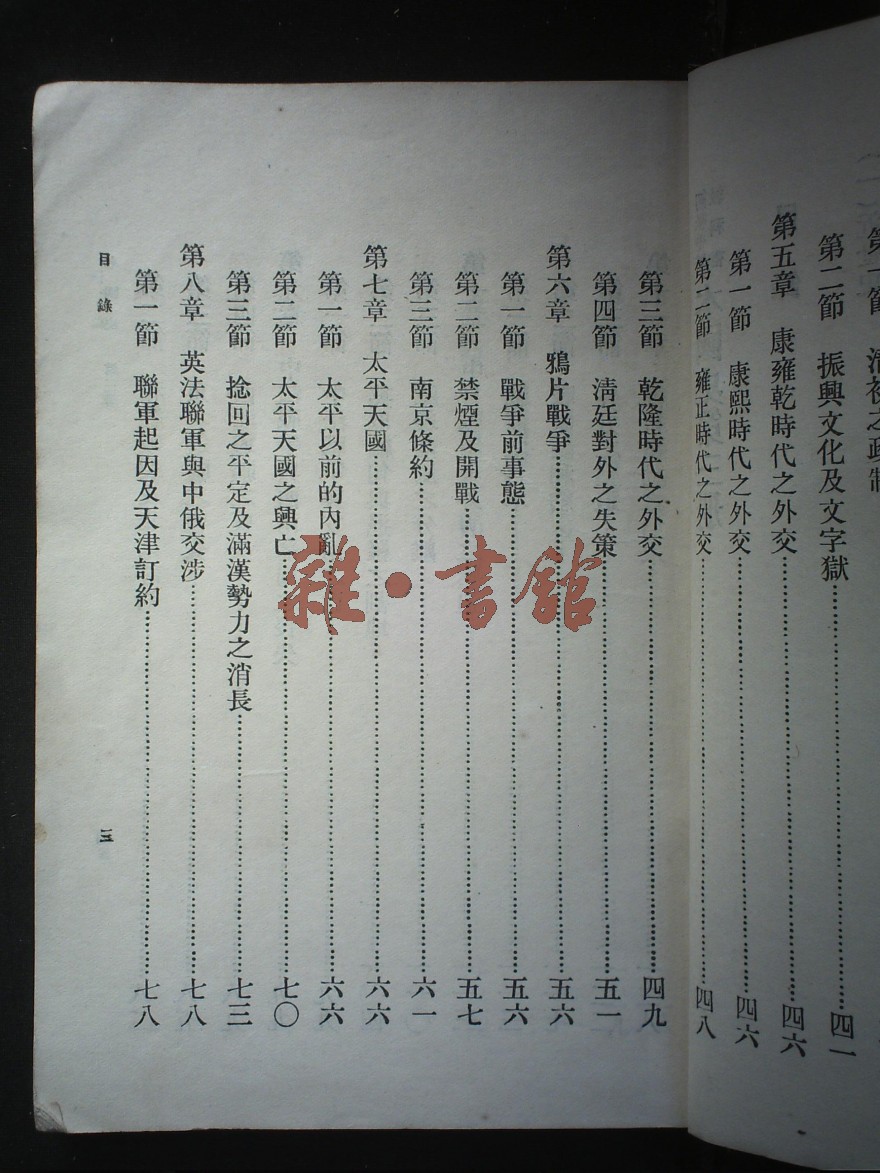 第二節　振興文化及文字獄……四一
第五章　康雍乾時代之外交……四六
第一節　康熙時代之外交……四六
第二節　雍正時代之外交……四八
第三節　乾隆時代之外交……四九
第四節　淸廷對外之失策……五一
第六章　鴉片戰爭……五六
第一節　戰爭前事態……五六
第二節　禁煙及開戰……五七
第三節　南京條約……六一
第七章　太平天國……六六
第一節　太平以前的內亂……六六
第二節　太平天國之興亡……七〇
第三節　捻回之平定及滿漢勢力之消長……七三
第八章　英法聯軍與中俄交涉……七八
第一節　聯軍起因及天津訂約……七八
目錄
三
雜·書館